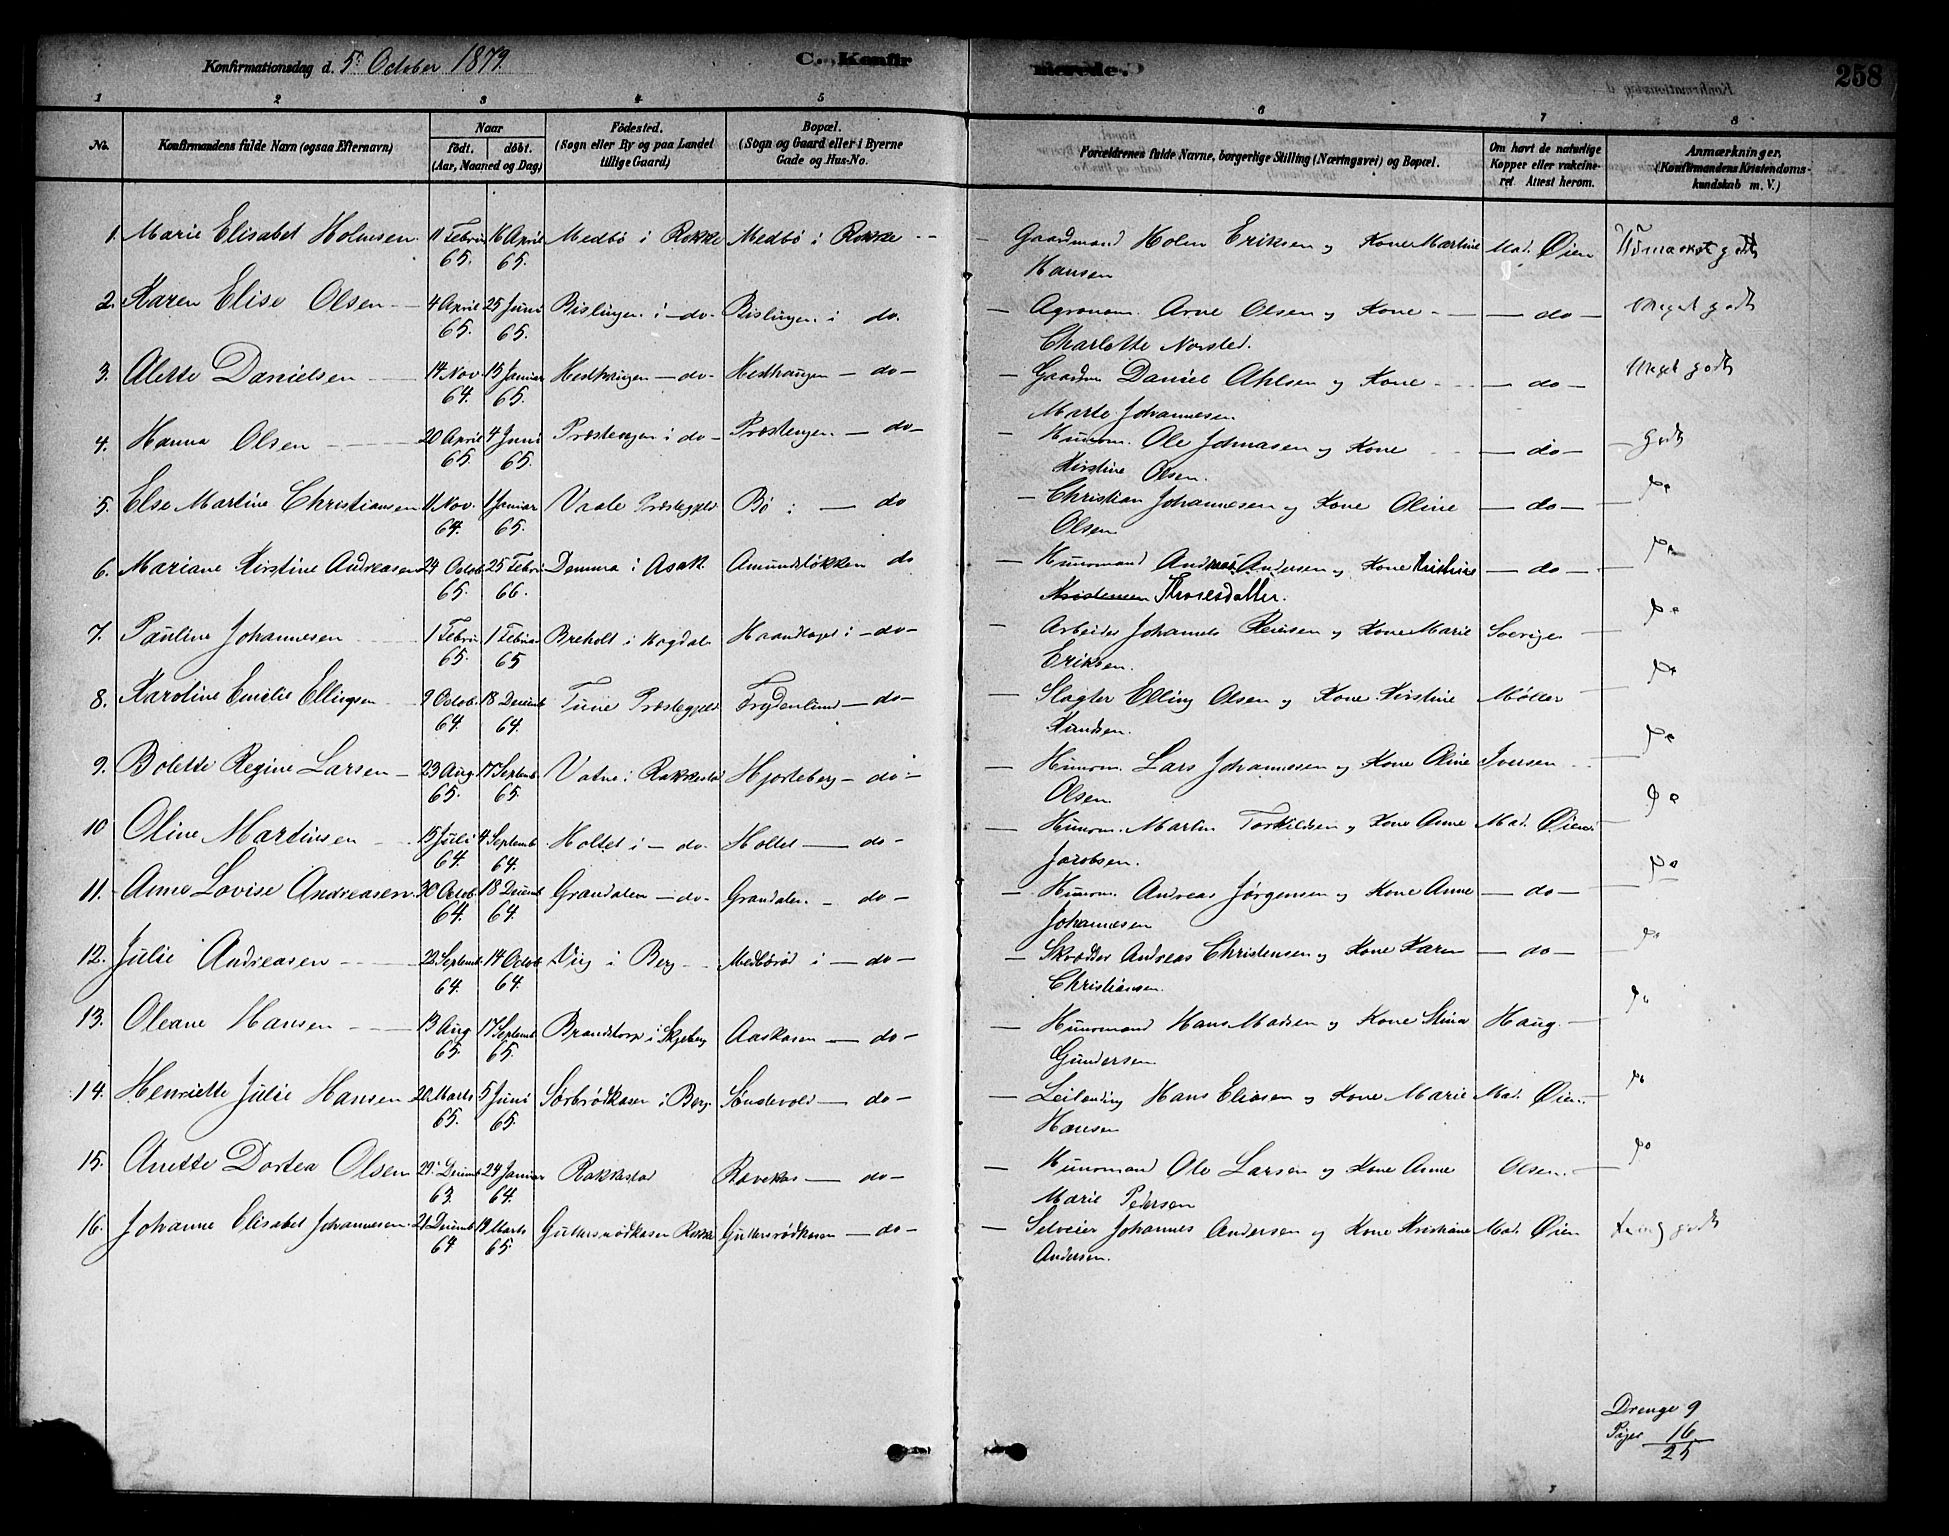 Konfirmationsdag d. 5te October 1879.
C. Konfirmerede.
258
1 2 3 4 5 6 7 8
No.
Konfirmandens fulde Navn (ogsaa Efternavn)
Naar
födt. döbt.
(Aar, Maaned og Dag)
Födested.
(Sogn eller By og paa Landet
tillige Gaard)
Bopæl.
(Sogn og Gaard eller i Byerne
Gade og Hus-No.
Forældrenes fulde Navne, borgerlige Stilling (Næringsvei) og Bopæl.
Om havt de naturlige
Kopper eller vakcine-
ret. Attest herom.
Anmærkninger.
(Konfirmandens Kristendoms-
kundskab m. V.)
1. Marie Elisabet Holmsen. 11 Febru 65. 16 April 65. Medbö i Rokke Medbö i Rokke Gaardmand Holm Eriksen og Kone Martine Mad. Øien Udmærket godt
Hansen
2. Karen Elise Olsen 4 April 65. 25 Juni 65. Bislingen i do Bislingen i do. Agronom. Arne Olsen og Kone do Meget godt
Charlotte Norsted.
3. Alette Danielsen 14 Nov. 64. 15 Januar 65. Hesthaugen do Hesthaugen do Gaardm Daniel Ahlsen og Kone do Meget godt
Marte Johannesen
4. Hanna Olsen 20 April 65. 4 Juni 65. Præstengen i do Præstengen do Husm. Ole Johnasen og Kone do Godt
Kirstine Olsen.
5. Else Martine Christiansen 11 Nov. 64. 1 Januar 65. Vaale Præstegjeld Bö i do Christian Johannesen og Kone Oline do Do
Olsen
6. Mariane Kirstine Andreasen 24 Octob 65. 25 Febru 66. Demma i Asak Amundslökken do Husmand Andreas Andersen og Kone Kristine do Do
Kristensen Thoresdatter.
7. Pauline Johannesen 1 Febru 65. 1 Februar 65 Breholt i Kogdal Haandlaget i do Arbeider Johannes Reiersen og Kone Marie Sverige Do
Eriksen.
8. Karoline Emelie Ellingsen 9 Octob. 64. 18 Decemb 64. Tune Præstegjeld Frydenlund do Slagter Elling Olsen og Kone Kirstine Möller Do
Knudsen.
9. Bolette Regine Larsen 23 Aug. 65. 17 Septemb 65. Vatne i Rakkestad Hjorteberg do Husm. Lars Johannesen og Kone Oline Iversen Do
Olsen
10 Oline Martinsen 15 Juli 64. 4 Septemb 64. Holtet i do Holtet do Husm. Martin Torkildsen og Kone Anne Mad. Øien Do
Jacobsen.
11. Anne Lovise Andreasen. 30 Octob 64. 18 Decemb 64. Grandalen do Grandalen do Husm. Andreas Jörgensen og Kone Anne do Do
Johannesen
12. Julie Andreasen 22 Septemb 64. 14 Octob 64. Viig i Berg Medböröd i do Skrædder Andreas Christensen og Kone Karen do Do
Christiansen.
13. Oleane Hansen 13 Aug 65. 17 Septemb 65. Brandstorp i Skjeberg Aaskasen do Husmand Hans Madsen og Kone Stina Haug. Do
Gundersen
14. Henriette Julie Hansen 20 Marts 65. 5 Juni 65. Sörbrödkasen i Berg. Söndevold do Leilending Hans Eliasen og Kone Marie Mad. Øien. Do
Hansen
15. Anette Dortea Olsen 29 Decemb 63. 24 Januar 64. Rakkestad Ravekas do Husmand Ole Larsen og Kone Anne Olsen. Do
Marie Pedersen
16. Johanne Elisabet Johannesen. 21 Decemb 64 19 Marts 65. Guttersrödkasen Rokke Guttersrödkasen do Selveier Johannes Andersen og Kone Kristiane Mad. Øien godt
Andersen.
Drenge 9
Piger 16
25